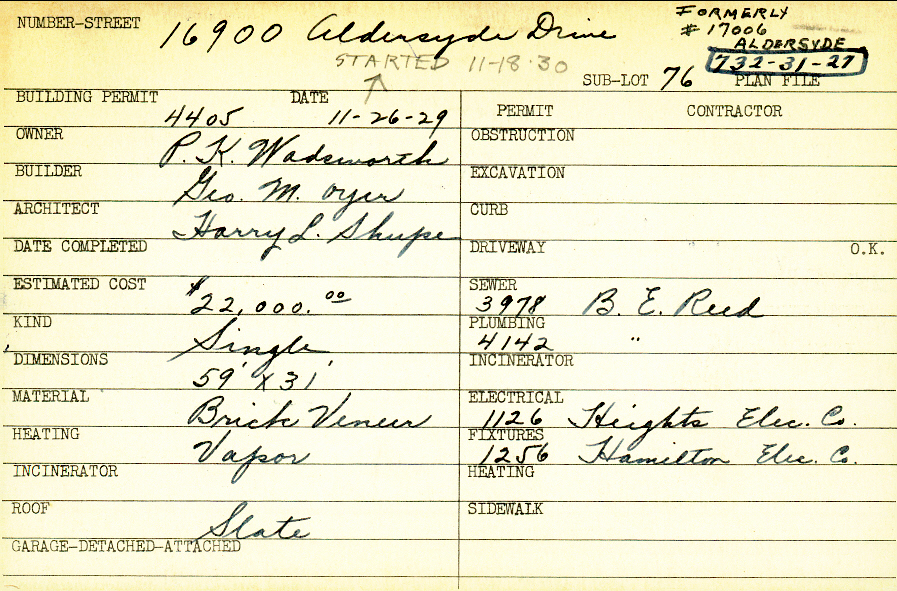 NUMBER-STREET 16900 Aldersyde Drive
FORMERLY
# 17006
ALDERSYDE
732-31-27
STARTED 11-18-30
SUB-LOT 76 PLAN FILE
BUILDING PERMIT 4405 DATE 11-26-29
PERMIT CONTRACTOR
OWNER P. K. Wadsworth
OBSTRUCTION
BUILDER Geo. M. Oyer
EXCAVATION
ARCHITECT Harry L. Shupe
CURB
DATE COMPLETED
DRIVEWAY O.K.
ESTIMATED COST $22,000.00
SEWER 3978 B. E. Reed
KIND Single
PLUMBING 4142 "
DIMENSIONS 59' x 31'
INCINERATOR
MATERIAL Brick Veneer
ELECTRICAL 1126 Heights Elec. Co.
HEATING Vapor
FIXTURES 1256 Hamilton Elec. Co.
INCINERATOR
HEATING
ROOF Slate
SIDEWALK
GARAGE-DETACHED-ATTACHED